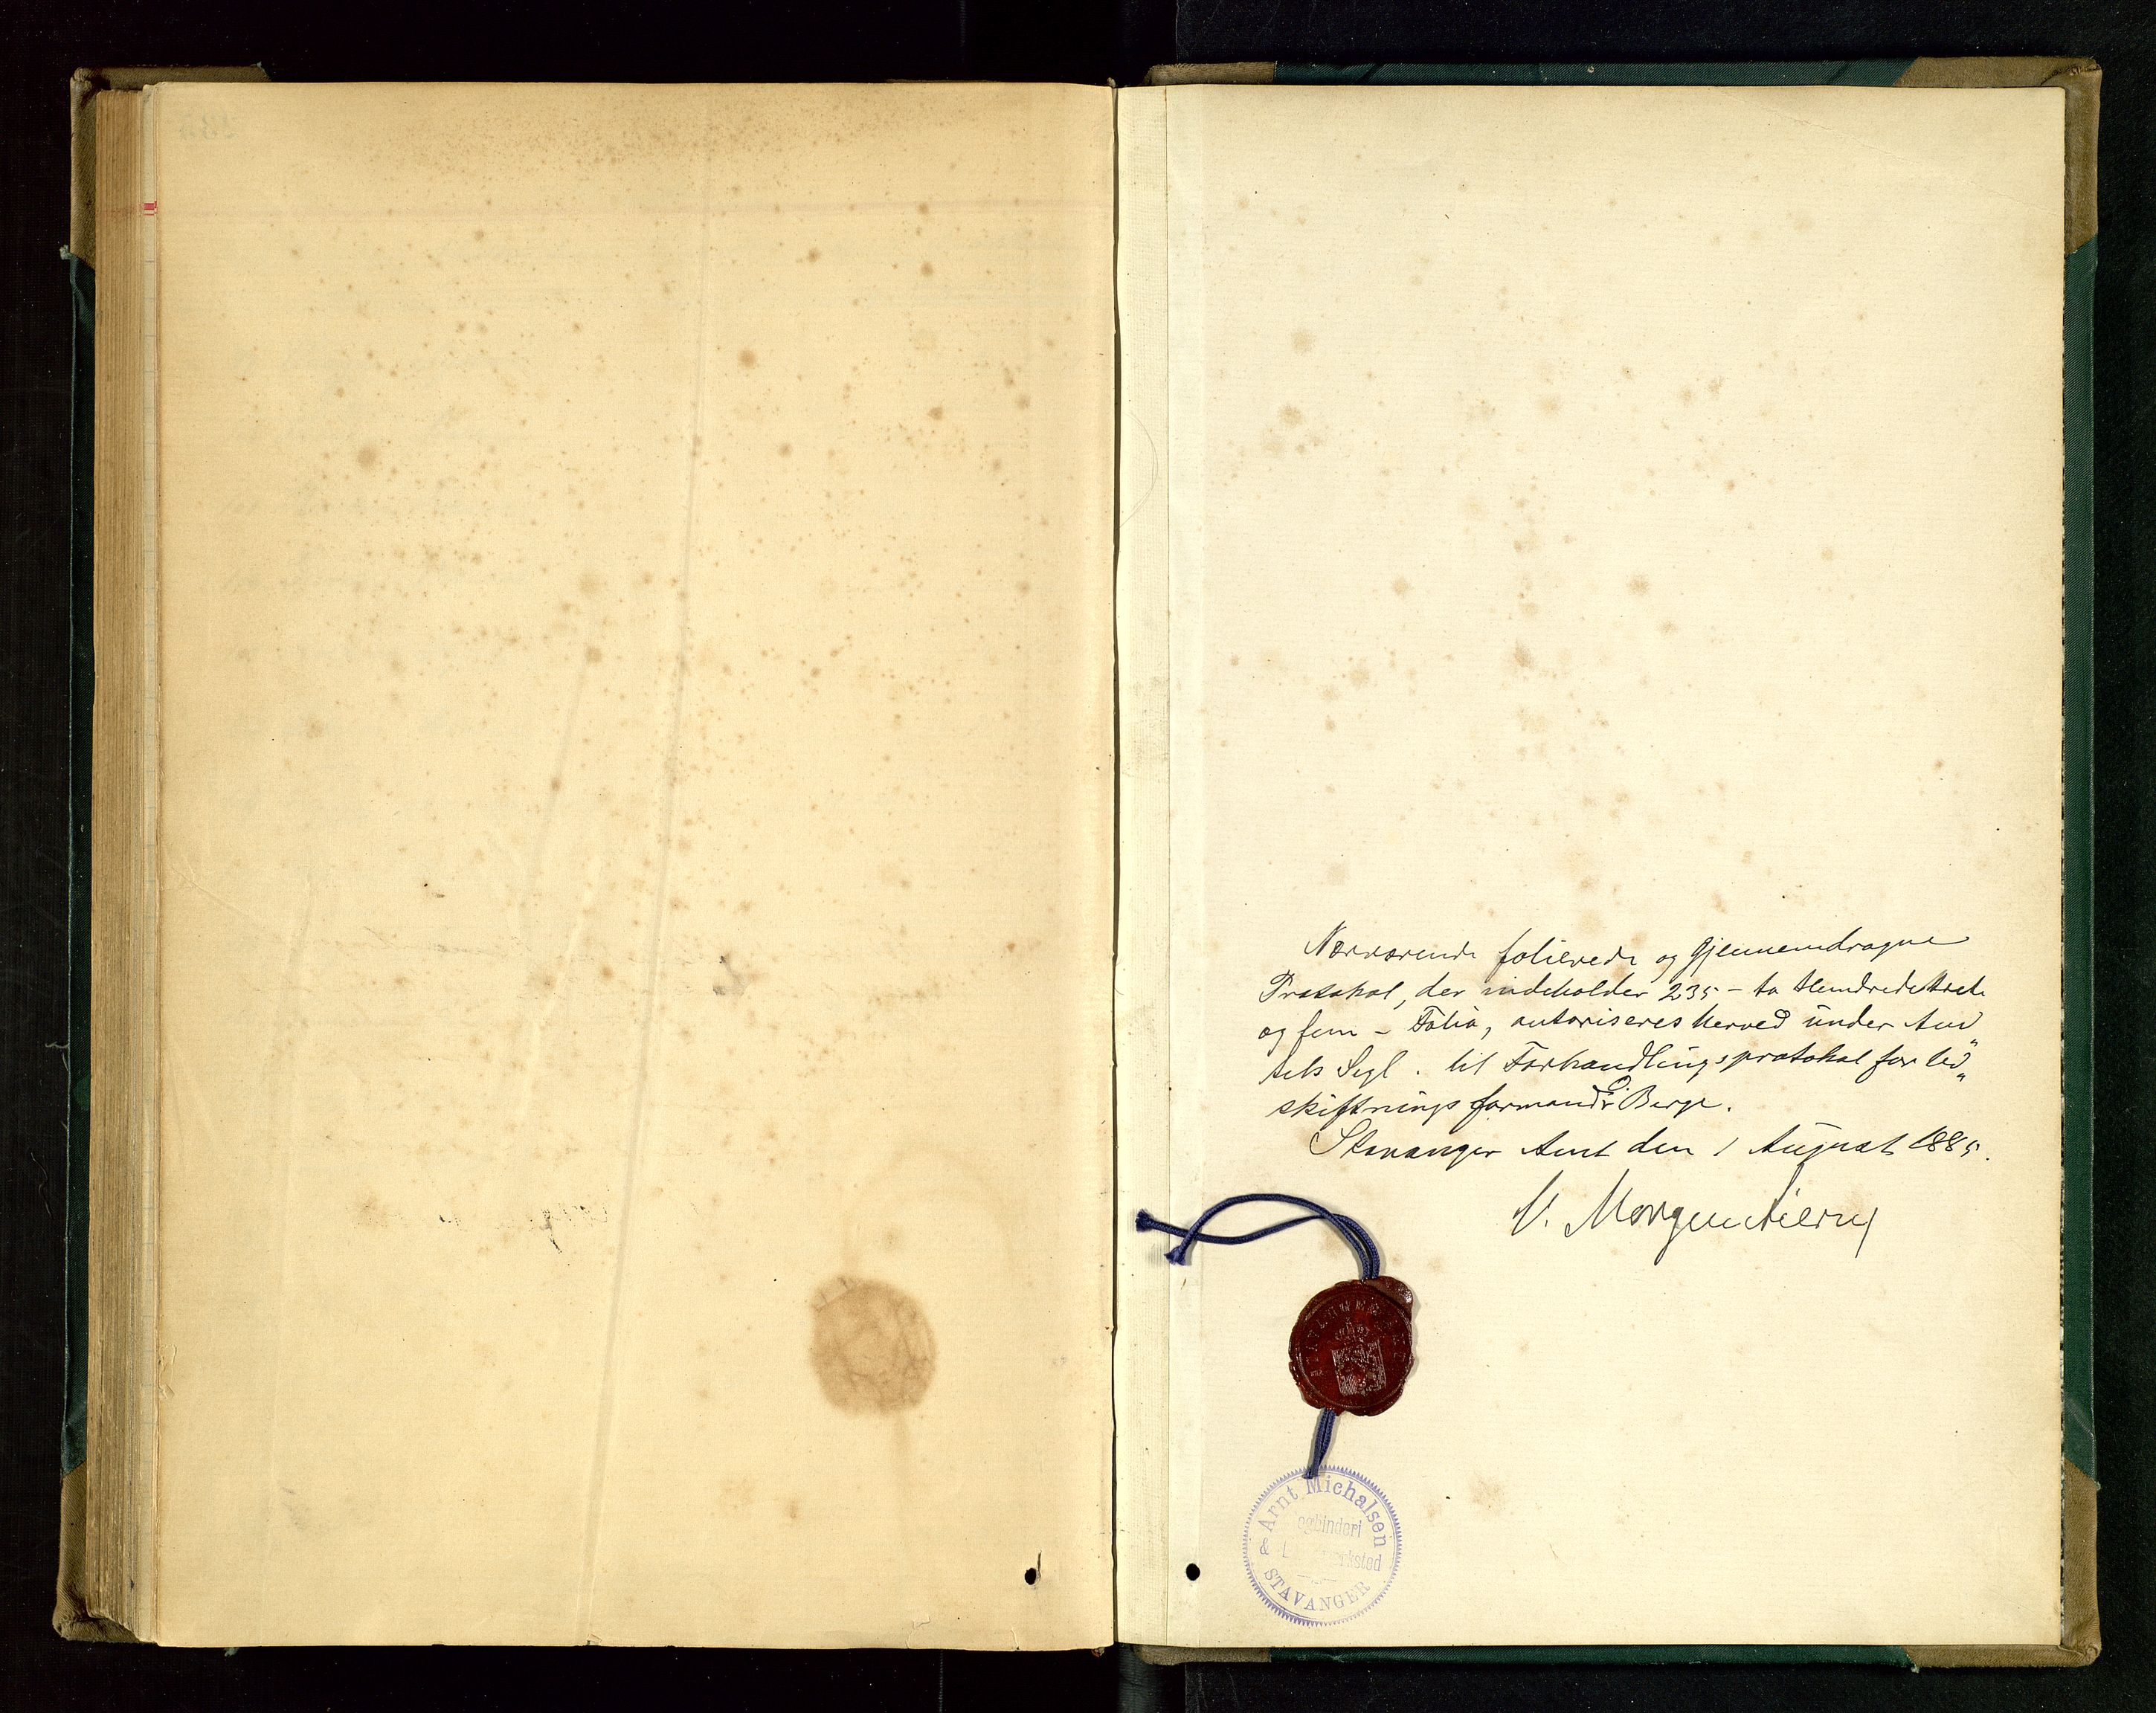 Nærværende folierede og gjennemdragne
Protokol, der indeholder 235 – to Hundrede treti
og fem – Folio, autoriseres herved under Am„
tets Segl . til Forhandlingsprotokol for Ud„
skiftningsformand O. Berge.
Stavanger Amt den 1 August 1885.
V. Morgenstierne
STAVANGER
Arnt Michalsen
ogbinderi
& L rksted
STAVANGER